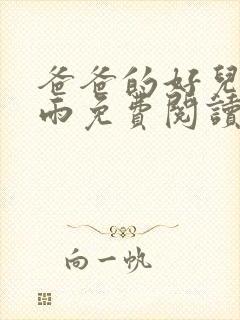 爸爸的好兒
雨免費閱讀
向一帆